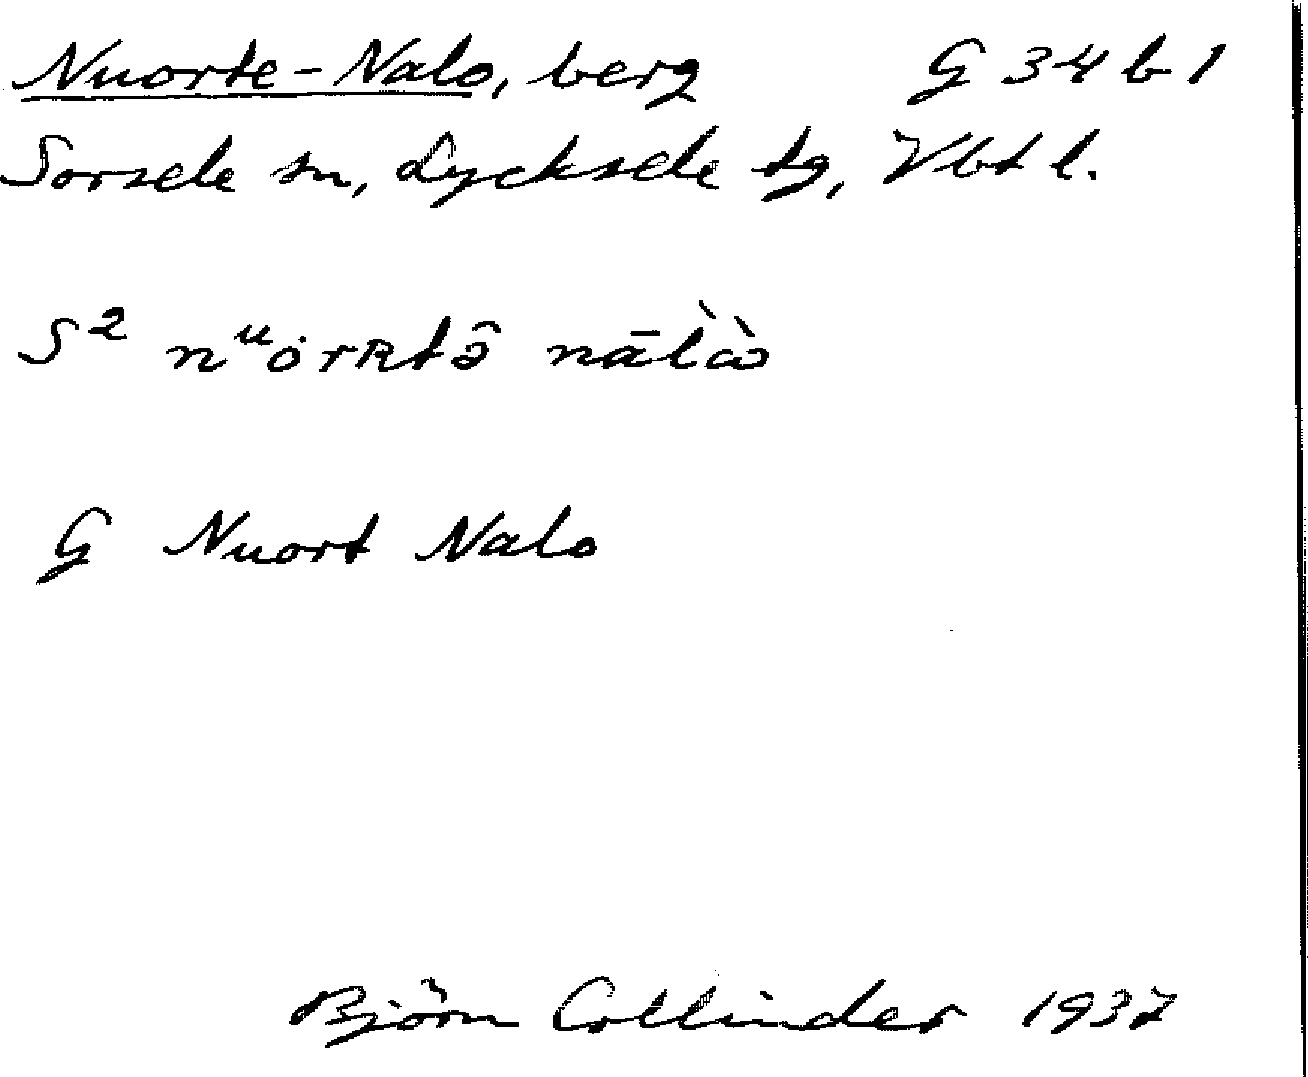 Nuorte-Nalo, berg G 34 b 1
Sorsele sn, Lycksele tg, Vbt l.
S² nᵘȯrʀtə̑ nāl̀ὼ
G Nuort Nalo
Björn Collinder 1937